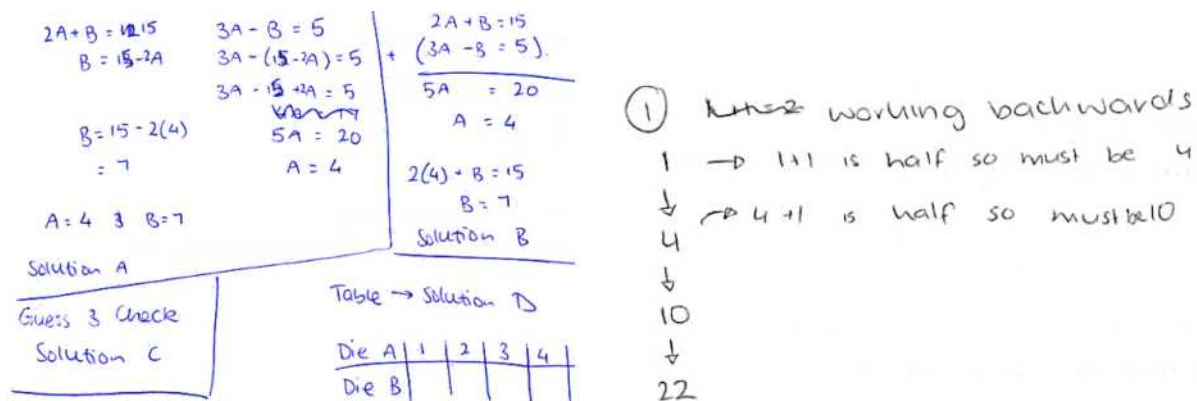 2A + B = 15
B = 15 - 2A
B = 15 - 2(4)
= 7
A = 4 & B = 7
Solution A
3A - B = 5
3A - (15 - 2A) = 5
3A - 15 + 2A = 5
5A = 20
A = 4
2A + B = 15
+ (3A - B = 5).
5A = 20
A = 4
2(4) + B = 15
B = 7
Solution B
Guess & Check
Solution C
Table → Solution D
Die A | 1 | 2 | 3 | 4 |
Die B
① working backwards
1 → 1+1 is half so must be 4
↓ → 4 +1 is half so must be 10
4
↓
10
↓
22